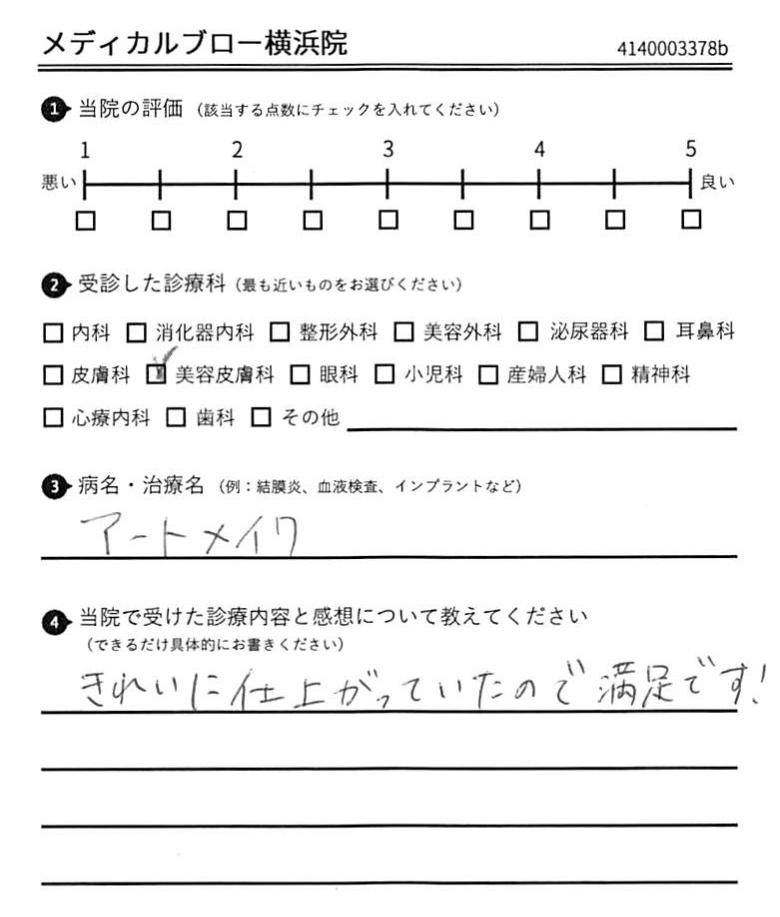 メディカルブロー横浜院 4140003378b
1 当院の評価 (該当する点数にチェックを入れてください)
1 2 3 4 5
悪い 良い
2 受診した診療科 (最も近いものをお選びください)
□ 内科 □ 消化器内科 □ 整形外科 □ 美容外科 □ 泌尿器科 □ 耳鼻科
□ 皮膚科 ☑ 美容皮膚科 □ 眼科 □ 小児科 □ 産婦人科 □ 精神科
□ 心療内科 □ 歯科 □ その他
3 病名・治療名 (例:結膜炎、血液検査、インプラントなど)
アートメイク
4 当院で受けた診療内容と感想について教えてください
(できるだけ具体的にお書きください)
きれいに仕上がっていたので満足です!